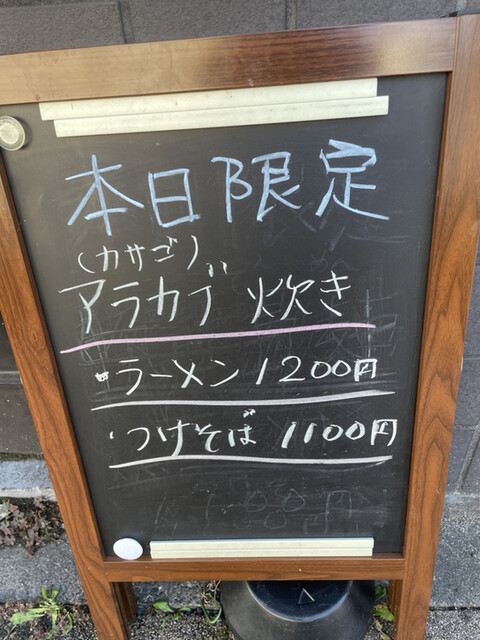 本日限定
(カサゴ)
アラカブ 炊き
・ラーメン 1200円
・つけそば 1100円